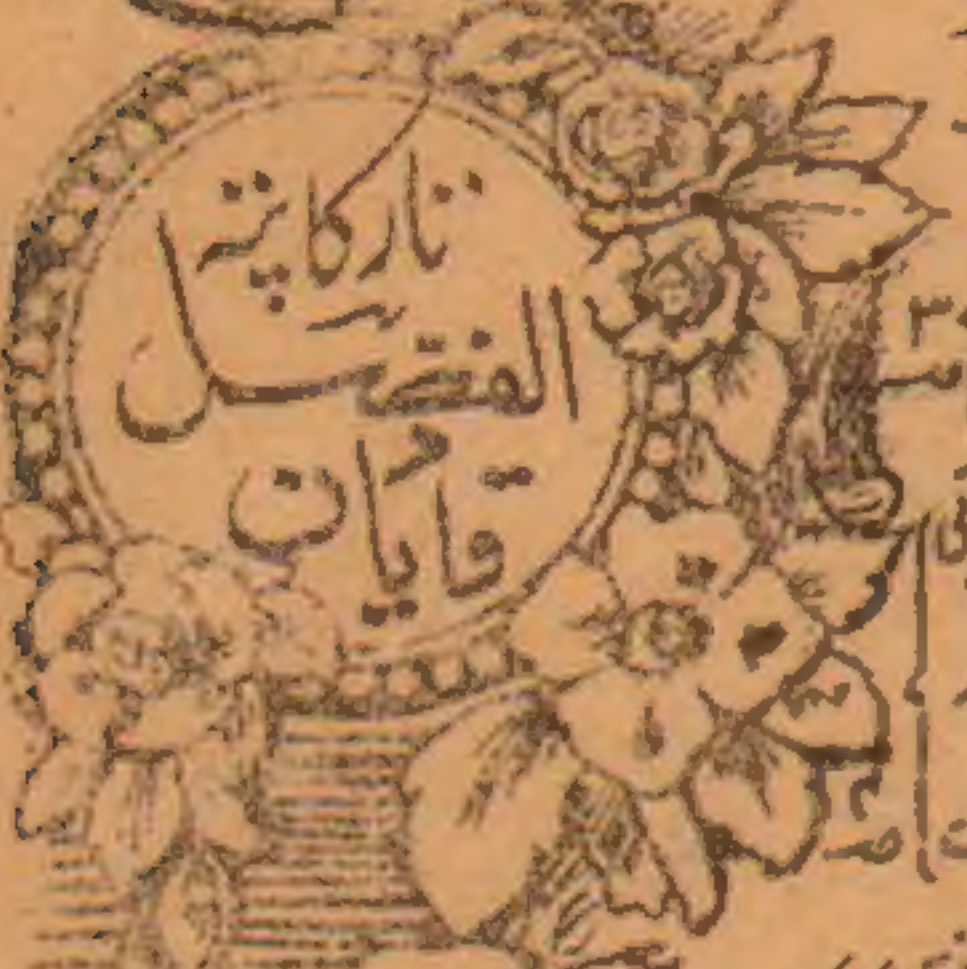 تار کا پتہ
الفضل
قادیان